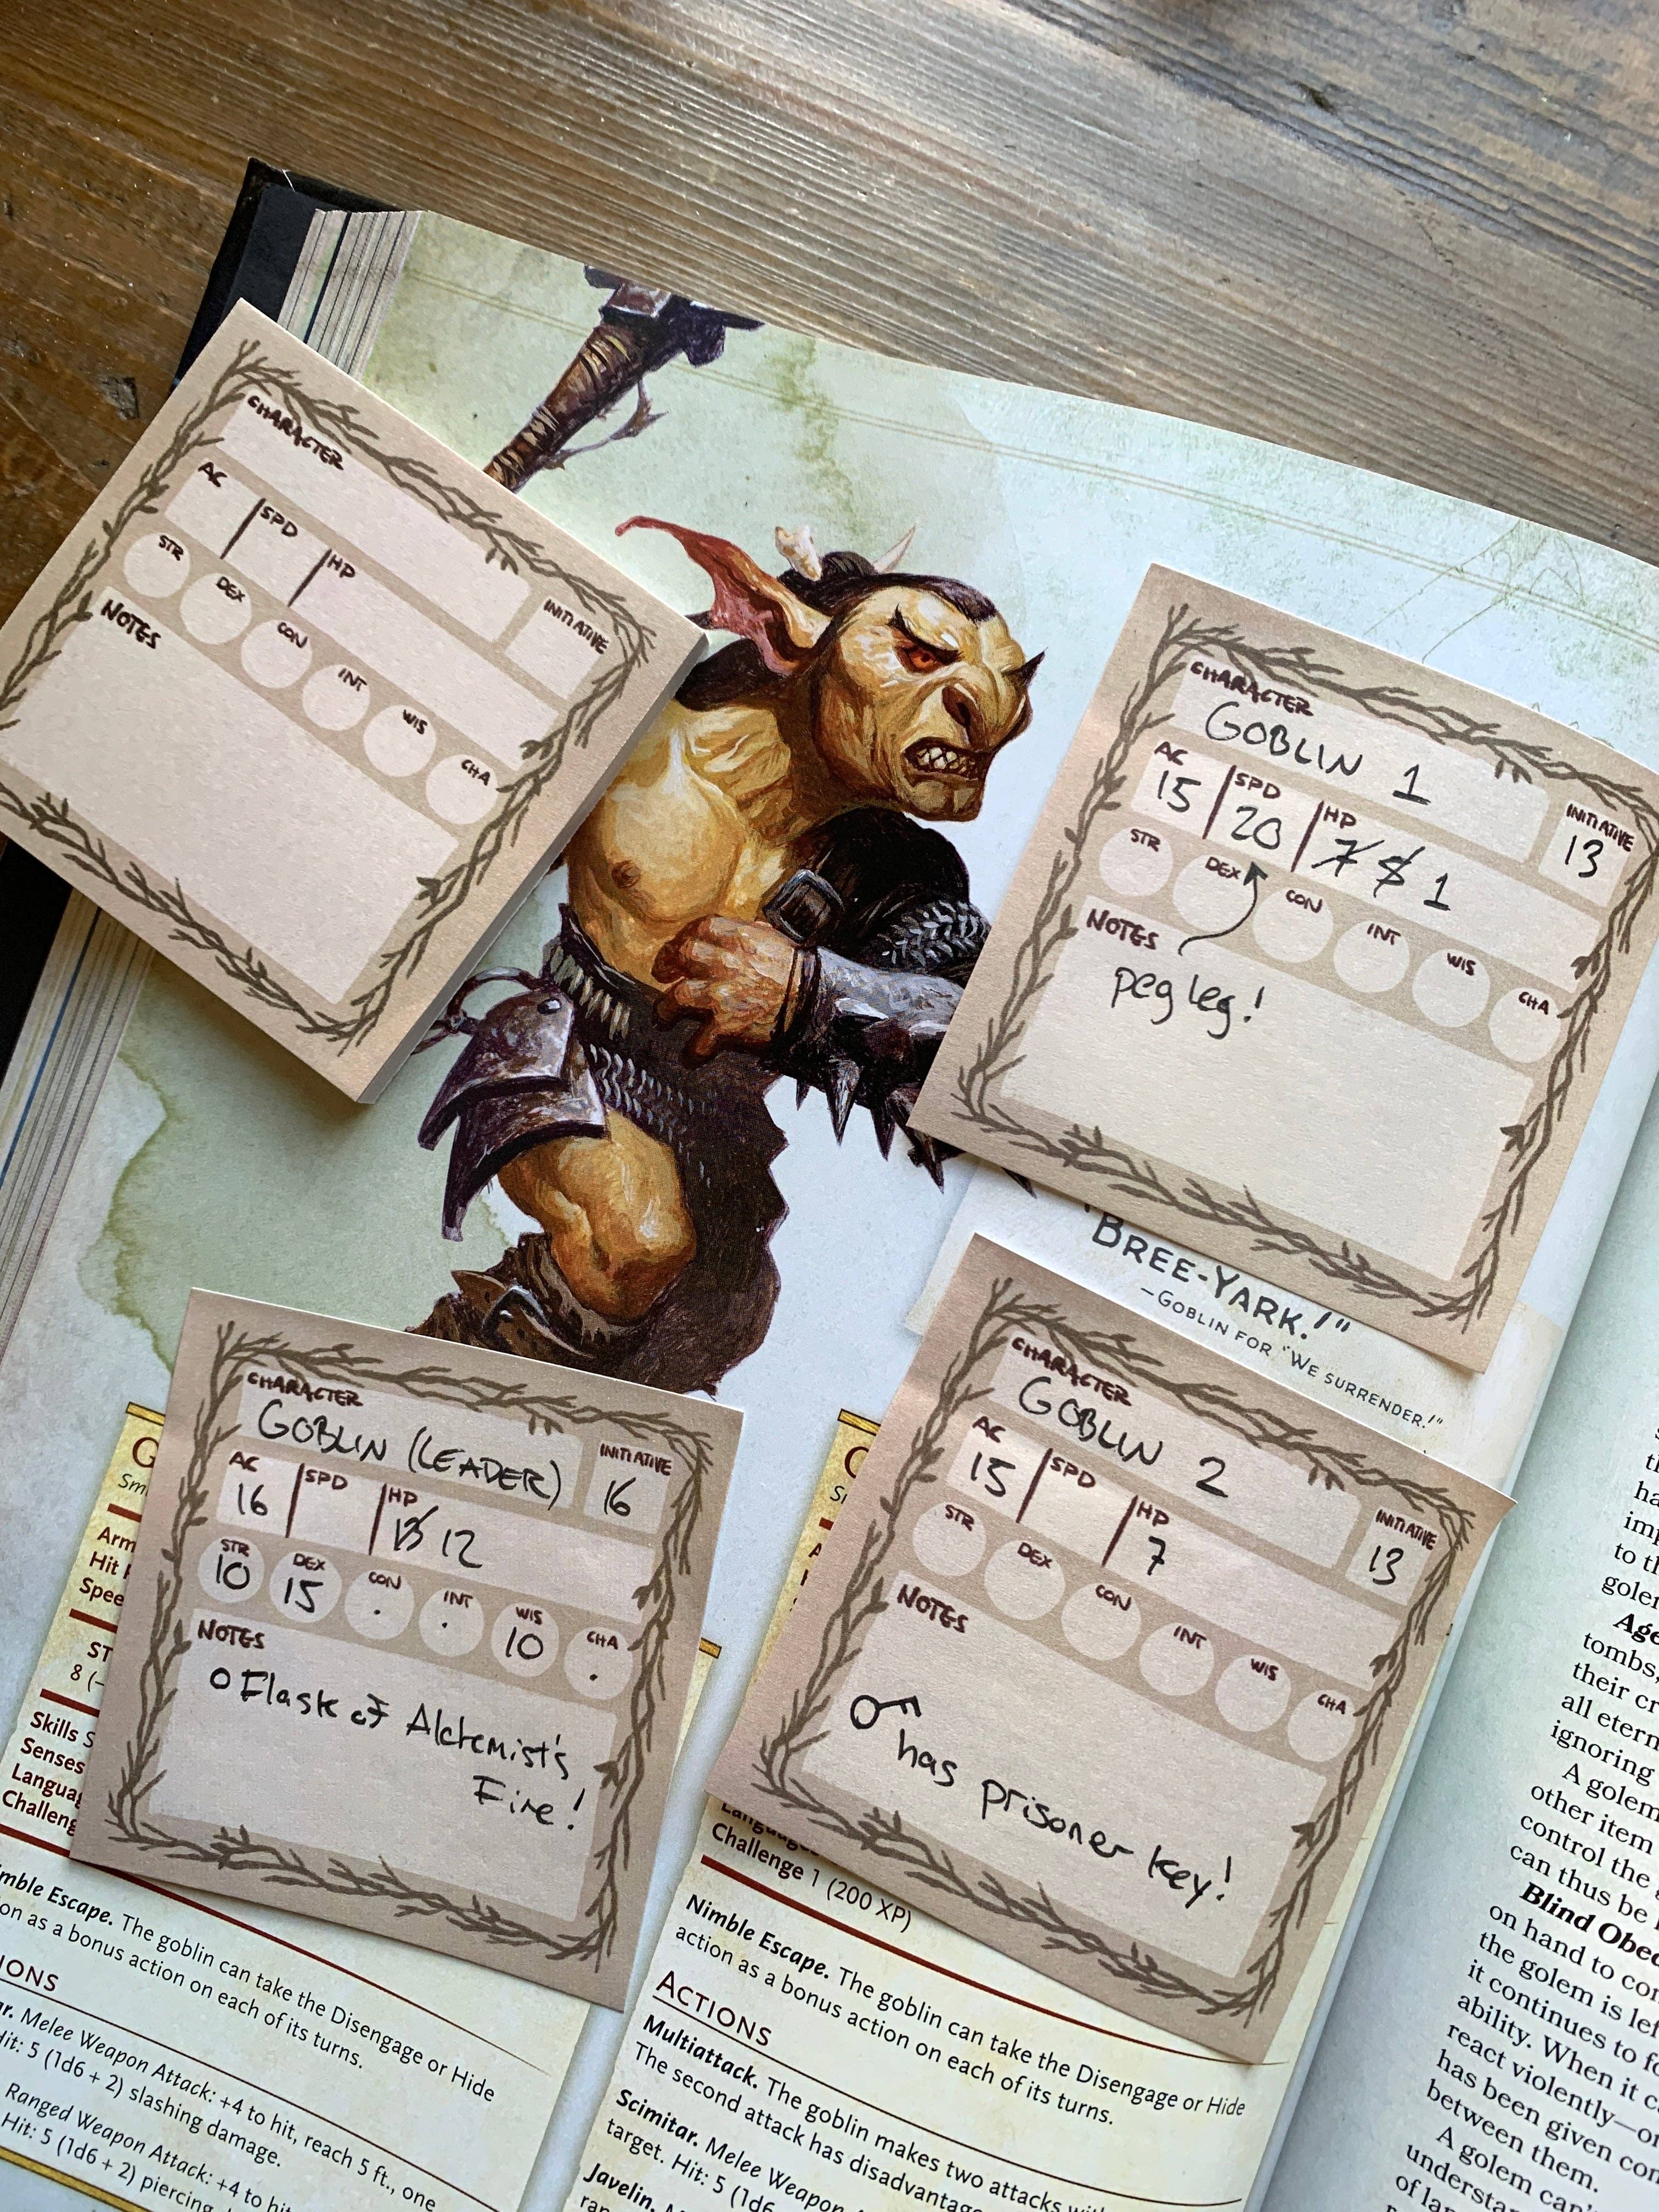 CHARACTER
AC SPD HP INITIATIVE
STR DEX CON INT WIS CHA
NOTES
CHARACTER
GOBLIN 1
AC SPD HP INITIATIVE
15 20 7 5 1 13
STR DEX CON INT WIS CHA
NOTES
peg leg!
"BREE-YARK!"
—GOBLIN FOR "WE SURRENDER!"
CHARACTER
GOBLIN (LEADER)
AC SPD HP INITIATIVE
16 13 12 16
STR DEX CON INT WIS CHA
10 15 . . 10 .
NOTES
Flask of Alchemist's
Fire!
CHARACTER
GOBLIN 2
AC SPD HP INITIATIVE
15 7 13
STR DEX CON INT WIS CHA
NOTES
has prisoner key!
G
Sm
Arm
Hit
Spee
ST
8 (–
Skills S
Senses
Langua
Challeng
mble Escape. The goblin can take the Disengage or Hide
on as a bonus action on each of its turns.
IONS
ar. Melee Weapon Attack: +4 to hit, reach 5 ft., one
Hit: 5 (1d6 + 2) slashing damage.
Ranged Weapon Attack: +4 to hit
Hit: 5 (1d6 + 2) piercing
Languages
Challenge 1 (200 XP)
Nimble Escape. The goblin can take the Disengage or Hide
action as a bonus action on each of its turns.
ACTIONS
Multiattack. The goblin makes two attacks with
The second attack has disadvantage
Scimitar. Melee Weapon A
target. Hit: 5 (1d6
Javelin.
ha
imp
to th
goler
Age
tombs,
their cr
all etern
ignoring
A golem
other item
control the g
can thus be
Blind Obed
on hand to con
the golem is lef
it continues to fo
ability. When it ca
react violently—or
has been given con
between them.
A golem can't
understan
of lan